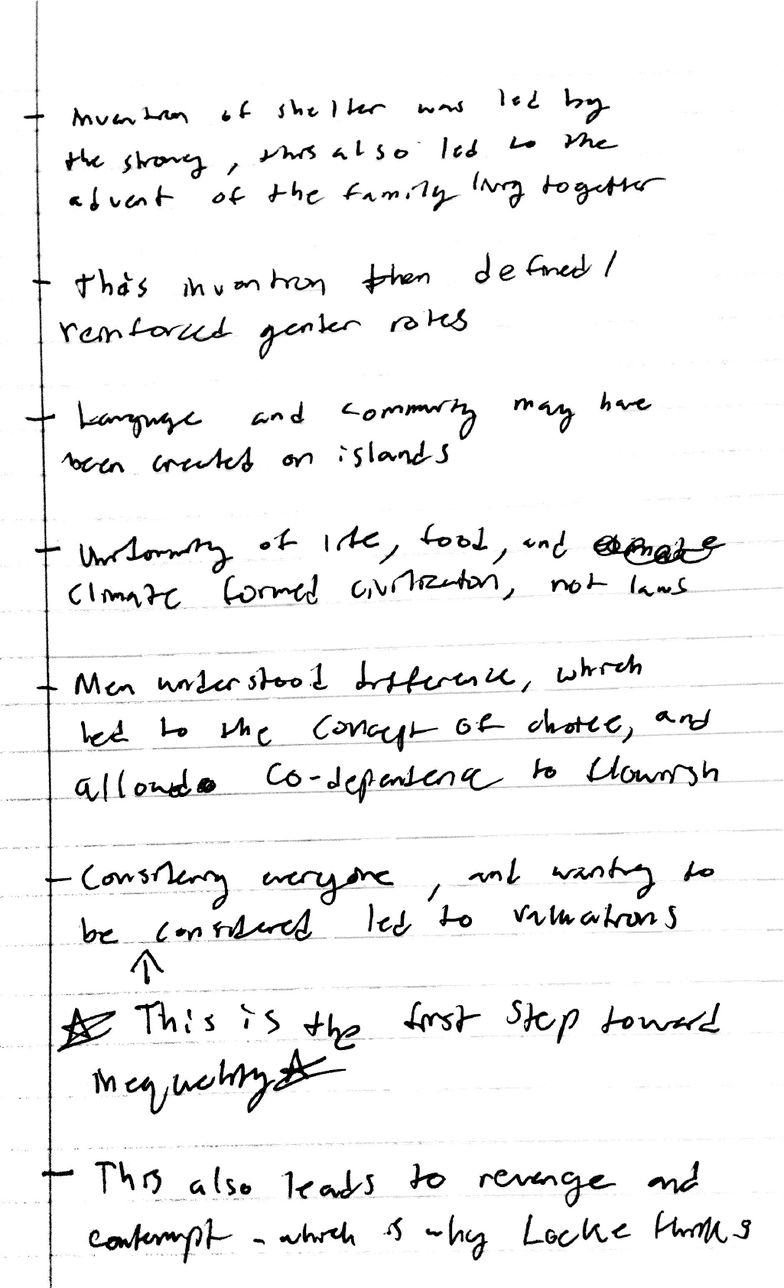 - Invention of shelter was led by
the strong, this also led to the
advent of the family living together
- this invention then defined/
reinforced gender roles
- Language and community may have
been created on islands
- Uniformity of life, food, and climate
climate formed civilization, not laws
- Men understood difference, which
led to the concept of choice, and
allowed co-dependence to flourish
- Considering everyone, and wanting to
be considered led to valuations
↑
☆ This is the first step toward
inequality ☆
- This also leads to revenge and
contempt - which is why Locke thinks